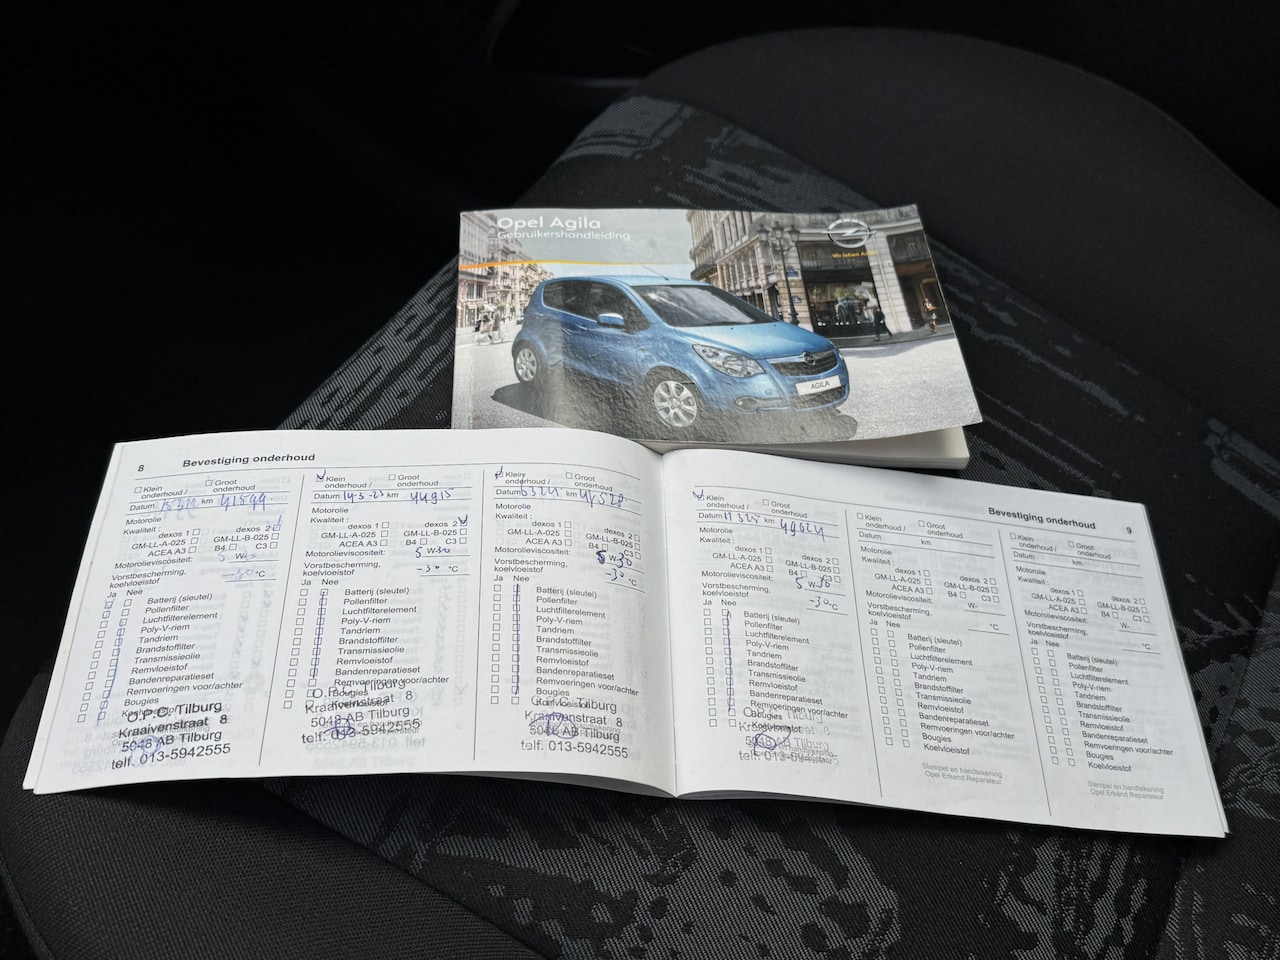 Opel Agila
Gebruikershandleiding
Wir leben Autos
AGILA
8 Bevestiging onderhoud
Klein onderhoud / Groot onderhoud
Datum km 41599
Motorolie
Kwaliteit :
dexos 1 dexos 2
GM-LL-A-025 GM-LL-B-025
ACEA A3 B4 C3
Motorolieviscositeit: 5 W-
Vorstbescherming, koelvloeistof -30 °C
Ja Nee
Batterij (sleutel)
Pollenfilter
Luchtfilterelement
Poly-V-riem
Tandriem
Brandstoffilter
Transmissieolie
Remvloeistof
Bandenreparatieset
Remvoeringen voor/achter
Bougies
Koelvloeistof
O.P.C. Tilburg
Kraaivenstraat 8
5048 AB Tilburg
telf. 013-5942555
Klein onderhoud / Groot onderhoud
Datum 14-3-23 km 44915
Motorolie
Kwaliteit :
dexos 1 dexos 2
GM-LL-A-025 GM-LL-B-025
ACEA A3 B4 C3
Motorolieviscositeit: 5 W30
Vorstbescherming, koelvloeistof -30 °C
Ja Nee
Batterij (sleutel)
Pollenfilter
Luchtfilterelement
Poly-V-riem
Tandriem
Brandstoffilter
Transmissieolie
Remvloeistof
Bandenreparatieset
Remvoeringen voor/achter
Bougies
O.P.C. Tilburg
Kraaivenstraat 8
5048 AB Tilburg
telf. 013-5942555
Klein onderhoud / Groot onderhoud
Datum 6324 km
Motorolie
Kwaliteit :
dexos 1 dexos 2
GM-LL-A-025 GM-LL-B-025
ACEA A3 B4 C3
Motorolieviscositeit: 5 W-30
Vorstbescherming, koelvloeistof -30 °C
Ja Nee
Batterij (sleutel)
Pollenfilter
Luchtfilterelement
Poly-V-riem
Tandriem
Brandstoffilter
Transmissieolie
Remvloeistof
Bandenreparatieset
Remvoeringen voor/achter
Bougies
O.P.C. Tilburg
Kraaivenstraat 8
5048 AB Tilburg
telf. 013-5942555
Bevestiging onderhoud 9
Klein onderhoud / Groot onderhoud
Datum 11 325 km 49624
Motorolie
Kwaliteit :
dexos 1 dexos 2
GM-LL-A-025 GM-LL-B-025
ACEA A3 B4 C3
Motorolieviscositeit: 5 W-30
Vorstbescherming, koelvloeistof -30 °C
Ja Nee
Batterij (sleutel)
Pollenfilter
Luchtfilterelement
Poly-V-riem
Tandriem
Brandstoffilter
Transmissieolie
Remvloeistof
Bandenreparatieset
Remvoeringen voor/achter
Bougies
Kraaivenstraat 8
5048 AB Tilburg
telf. 013-5942555
Klein onderhoud / Groot onderhoud
Datum km
Motorolie
Kwaliteit :
dexos 1 dexos 2
GM-LL-A-025 GM-LL-B-025
ACEA A3 B4 C3
Motorolieviscositeit: W-
Vorstbescherming, koelvloeistof °C
Ja Nee
Batterij (sleutel)
Pollenfilter
Luchtfilterelement
Poly-V-riem
Tandriem
Brandstoffilter
Transmissieolie
Remvloeistof
Bandenreparatieset
Remvoeringen voor/achter
Bougies
Koelvloeistof
Stempel en handtekening
Opel Erkend Reparateur
Klein onderhoud / Groot onderhoud
Datum km
Motorolie
Kwaliteit :
dexos 1 dexos 2
GM-LL-A-025 GM-LL-B-025
ACEA A3 B4 C3
Motorolieviscositeit: W-
Vorstbescherming, koelvloeistof °C
Ja Nee
Batterij (sleutel)
Pollenfilter
Luchtfilterelement
Poly-V-riem
Tandriem
Brandstoffilter
Transmissieolie
Remvloeistof
Bandenreparatieset
Remvoeringen voor/achter
Bougies
Koelvloeistof
Stempel en handtekening
Opel Erkend Reparateur